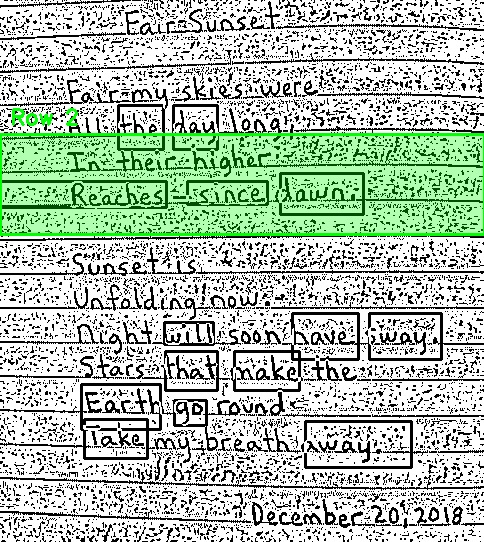 Fair Sunset
Fair my skies were
Row 2
All the day long,
In their higher
Reaches - since dawn.
Sunset is
Unfolding now.
Night will soon have sway.
Stars that make the
Earth go round
Take my breath away.
December 20, 2018